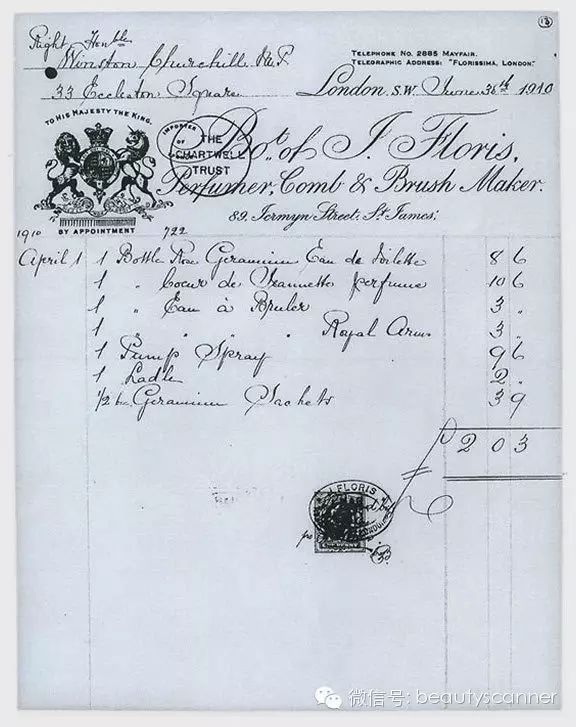 13
Right Honble
Winston Churchill M.P.
33 Eccleston Square
TELEPHONE NO. 2885 MAYFAIR.
TELEGRAPHIC ADDRESS: "FLORISSIMA, LONDON."
London, S.W. June 30th 1910
TO HIS MAJESTY THE KING.
BY APPOINTMENT
THE
CHARTWELL
TRUST
Bot. of J. Floris,
Perfumer, Comb & Brush Maker.
89, Jermyn Street, St. James;
1910 722
April 1 1 Bottle Rose Geranium Eau de Toilette 8 6
1 " Coeur de Jeannette perfume 10 6
1 " Eau à Bruler 3 "
1 " " " Royal Arms 3 "
1 Pump Spray 9 6
1 Ladle 2 "
1/2 Geranium Sachets 3 9
£ 2 0 3
J FLORIS
微信号: beautyscanner